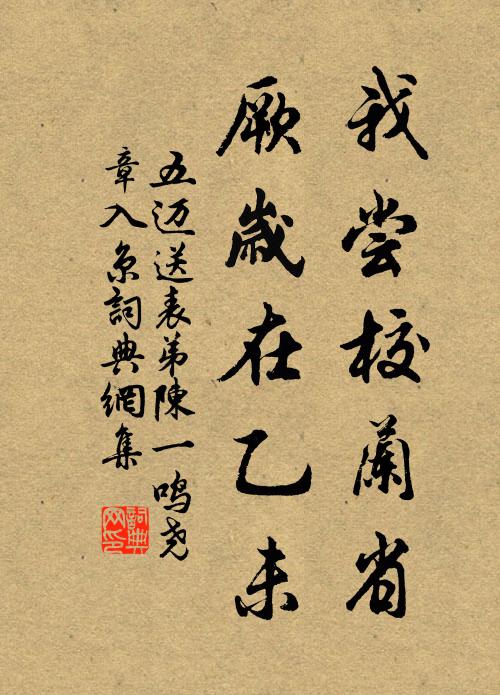 我尝校蘭省
厥歲在乙未
五迈送表弟陳一鸣尧
章入京詞典網集
詞典
网印